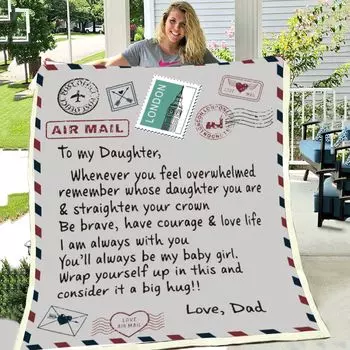 LONDON
AIR MAIL
To my Daughter,
Whenever you feel overwhelmed
remember whose daughter you are
& straighten your crown
Be brave, have courage & love life
I am always with you
You'll always be my baby girl.
Wrap yourself up in this and
consider it a big hug!!
Love, Dad
LOVE
AIR MAIL